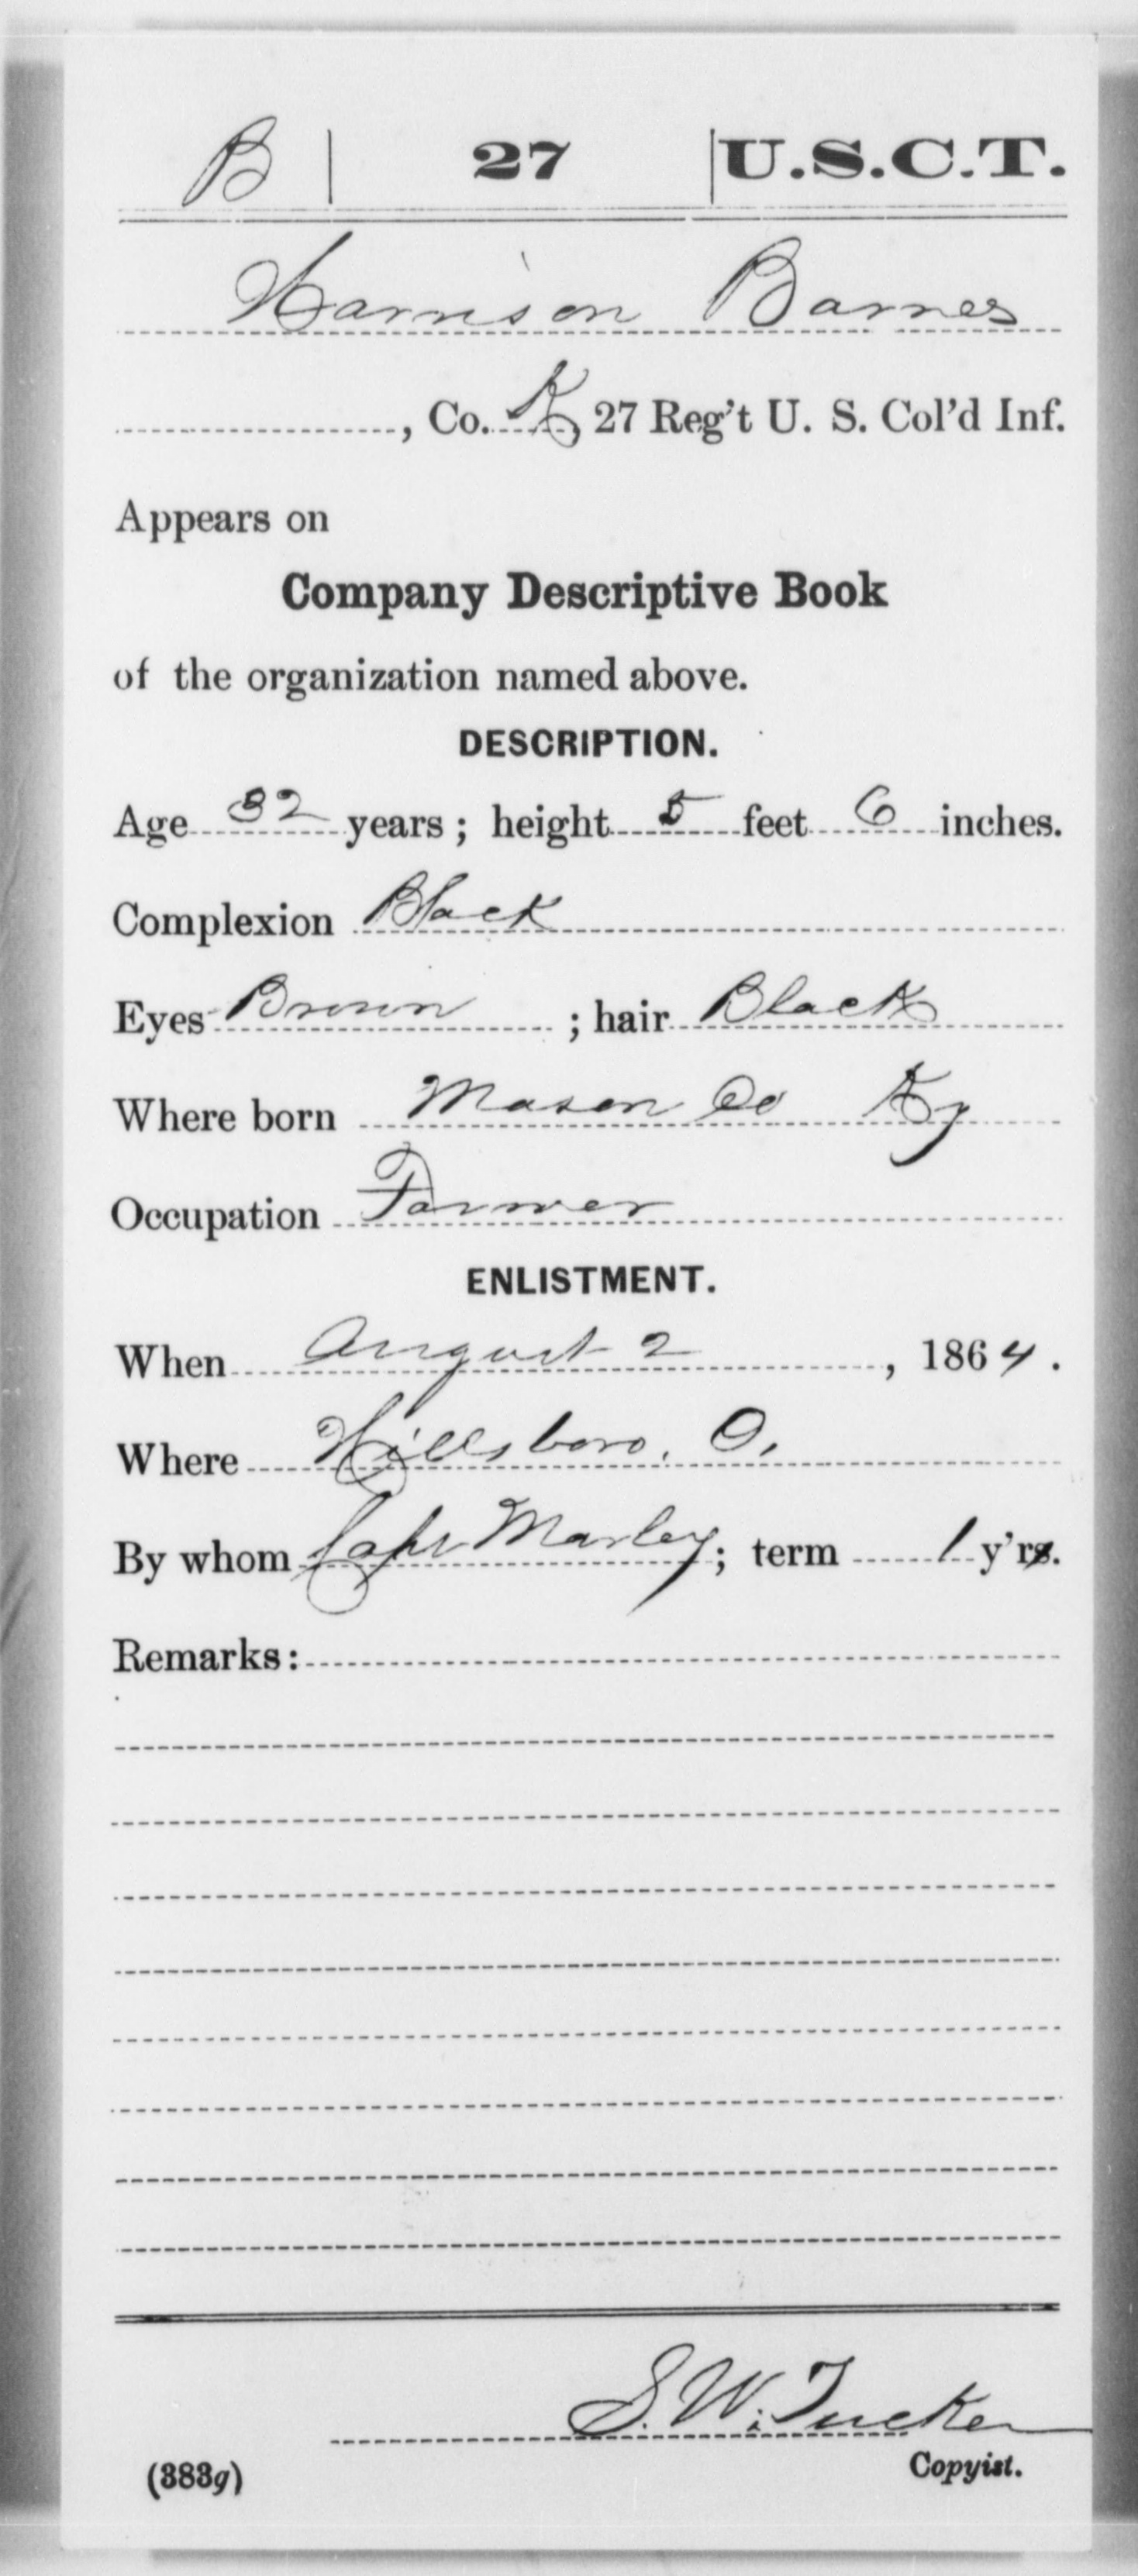 B | 27 | U.S.C.T.
Harrison Barnes
, Co. K, 27 Reg't U. S. Col'd Inf.
Appears on
Company Descriptive Book
of the organization named above.
DESCRIPTION.
Age 32 years; height 5 feet 6 inches.
Complexion Black
Eyes Brown ; hair Black
Where born Mason Co Ky
Occupation Farmer
ENLISTMENT.
When August 2, 1864.
Where Hillsboro, O.
By whom Capt Marley; term 1 y'rs.
Remarks:
S. W. Tucker
Copyist.
(383g)